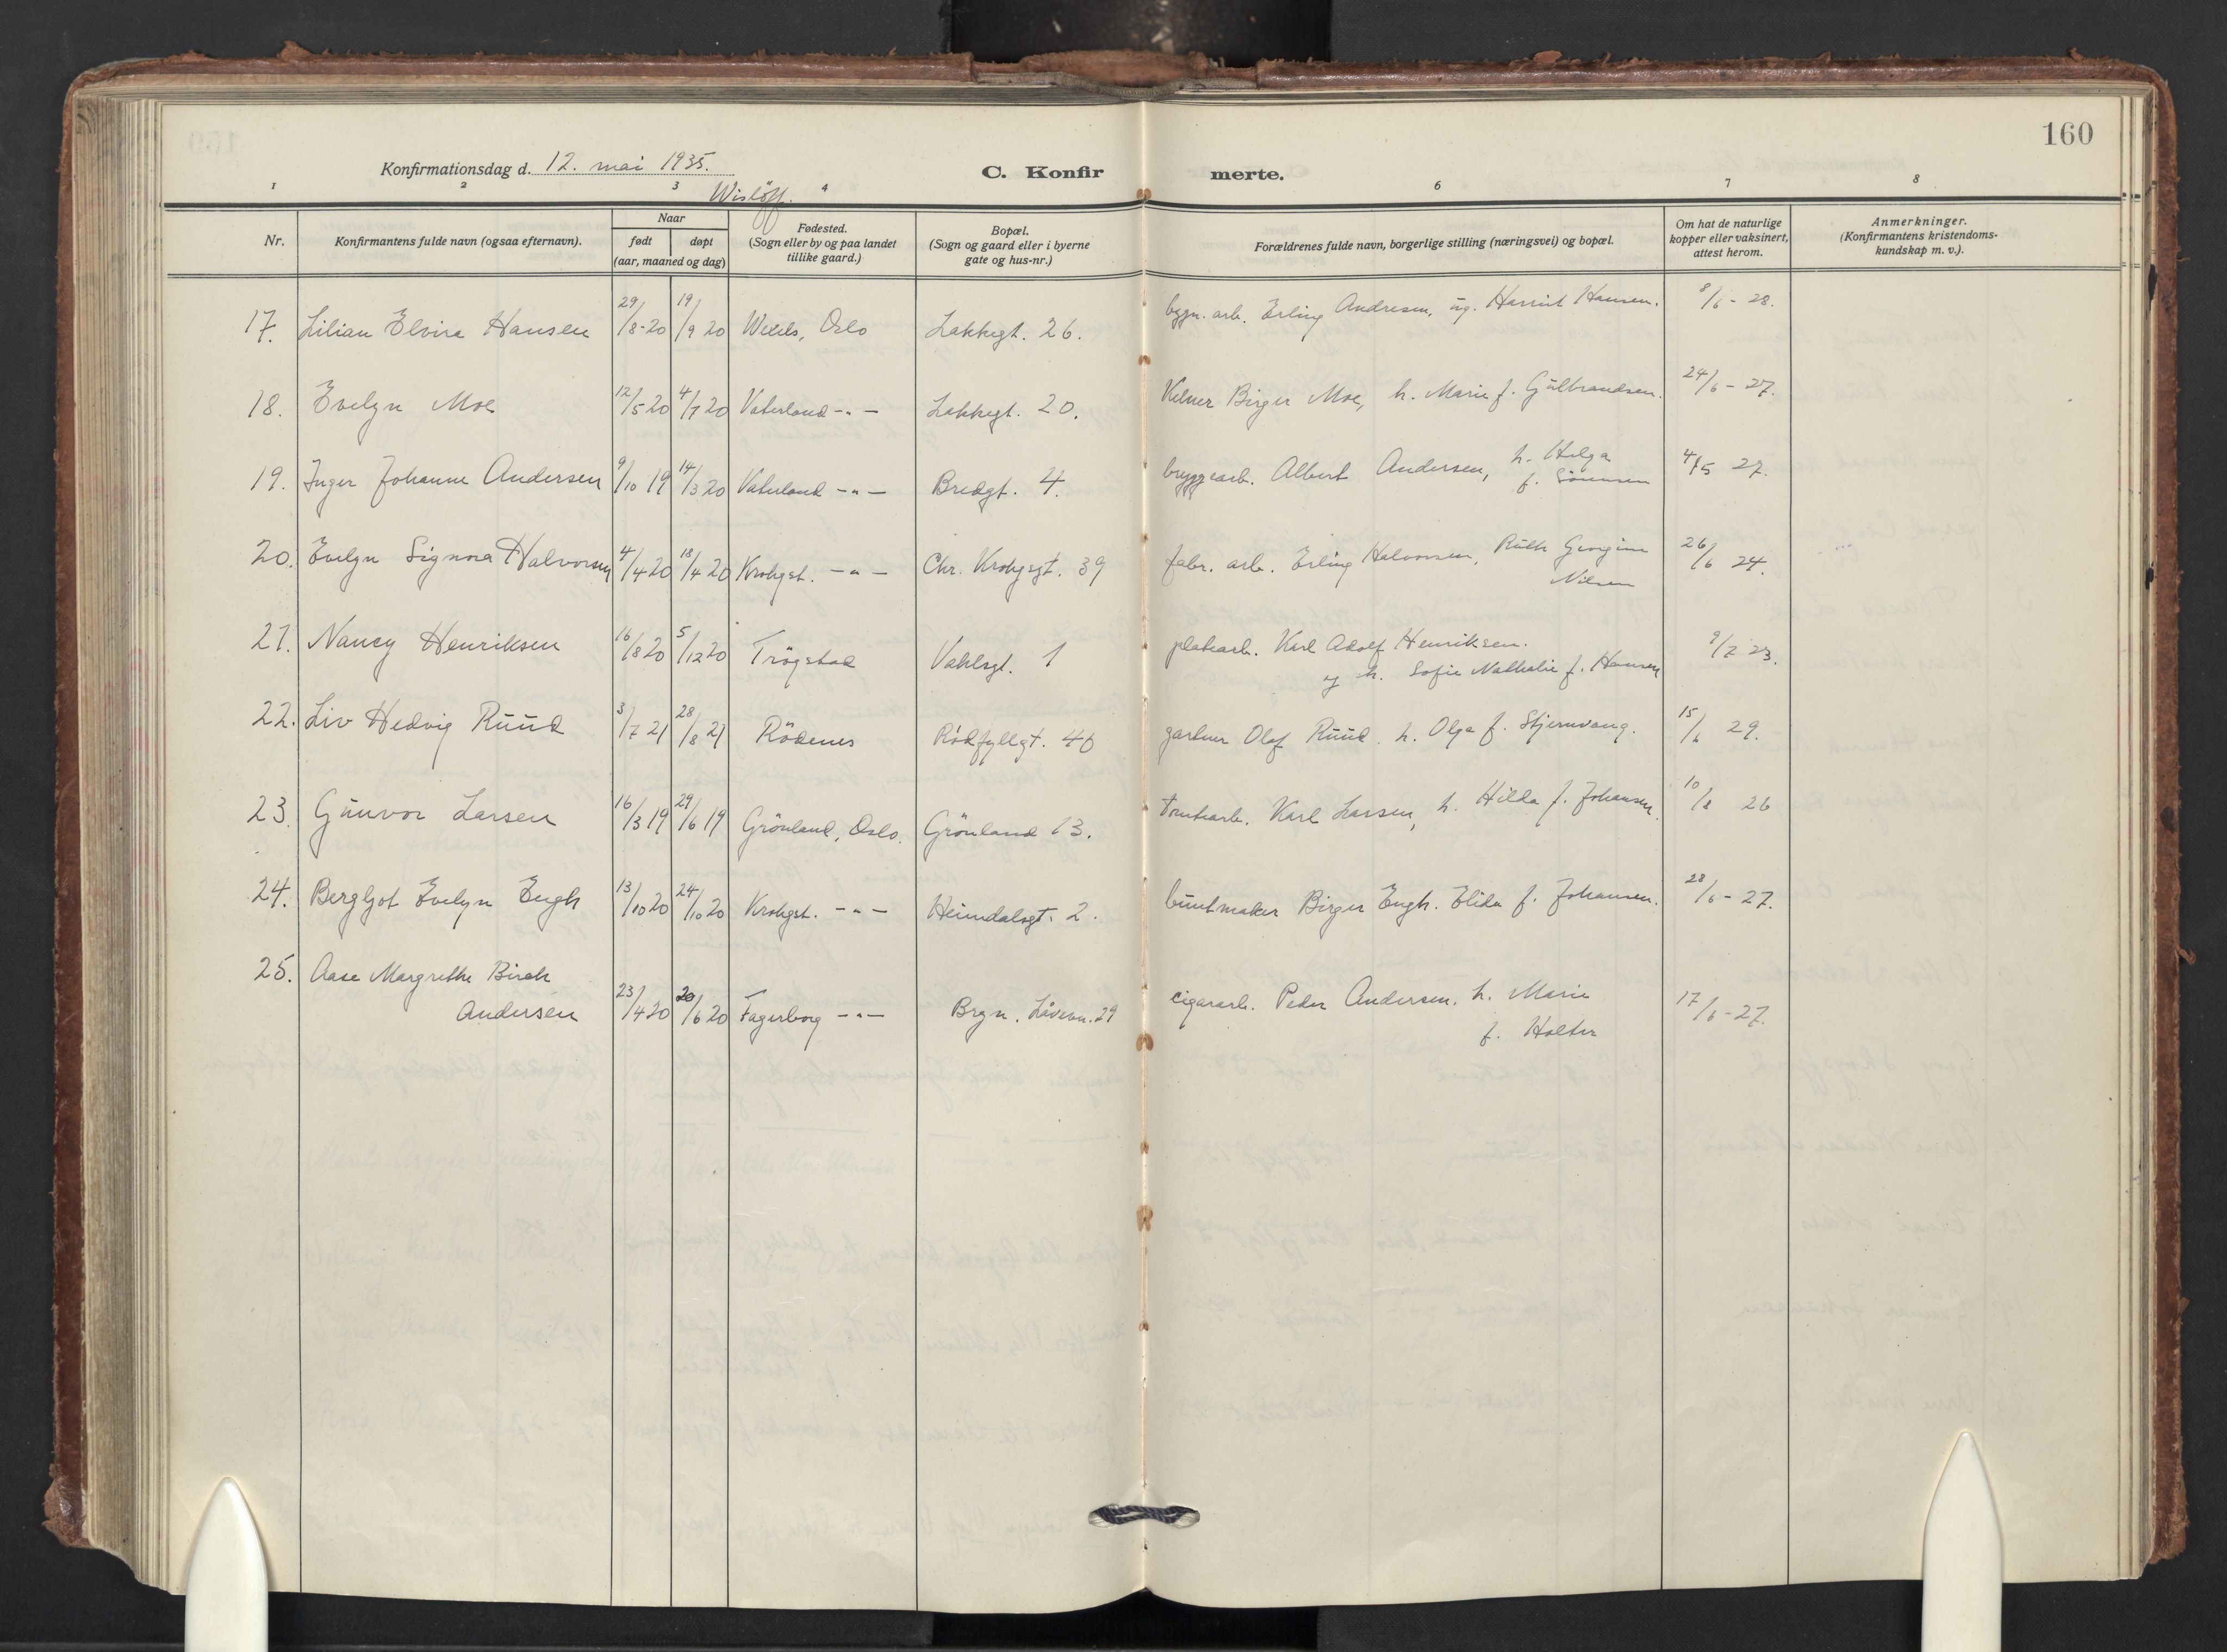 160
Konfirmationsdag d. 12. mai 1935.
C. Konfir merte.
1 2 3 4 6 7 8
Wislöff.
Nr.
Konfirmantens fulde navn (ogsaa efternavn).
Naar
født døpt
(aar, maaned og dag)
Fødested.
(Sogn eller by og paa landet
tillike gaard.)
Bopæl.
(Sogn og gaard eller i byerne
gate og hus-nr.)
Forældrenes fulde navn, borgerlige stilling (næringsvei) og bopæl.
Om hat de naturlige
kopper eller vaksinert,
attest herom.
Anmerkninger.
(Konfirmantens kristendoms-
kundskap m. v.).
17. Lilian Elvira Hansen 29/8-20 19/9 20 Oslo Lakkegt. 26. bygn. arb. Erling Andresen, ug. Harriet Hansen. 8/6 - 28.
18. Evelyn Moe 12/5 20 4/7 20 Vaterland -"- Lakkegt. 20. Kelner Birger Moe, h. Marie f. Gulbrandsen. 24/6 - 27.
19. Inger Johanne Andersen 9/10 19 14/3 20 Vaterland -"- Bredgt. 4. bryggearb. Albert Andersen, h. Helga
f. Sörensen 4/5 27.
20. Evelyn Signora Halvorsen 4/4 20 18/4 20 Krohgst. -"- Chr. Krohgsgt. 39 fabr. arb. Erling Halvorsen, Ruth Georgine
Nilsen 26/6 24.
21. Nancy Henriksen 16/8 20 5/12 20 Trögstad Vahlsgt. 1 platearb. Karl Adolf Henriksen.
og h. Sofie Nathalie f. Hansen 9/7 23.
22. Liv Hedvig Ruud 3/7 21 28/8 21 Rödenes Rödfyllgt. 40 gartner Olaf Ruud. h. Olga f. Stjernvang. 15/6 29.
23. Gunvor Larsen 16/3 19 29/6 19 Grönland, Oslo. Grönland 13. tomtearb. Karl Larsen, h. Hilda f. Johansen. 10/8 26
24. Bergljot Evelyn Engh 13/10 20 24/10 20 Krohgst. -"- Heimdalsgt. 2. buntmaker Birger Engh. Elida f. Johansen. 28/6 - 27.
25. Aase Margrethe Birch
Andersen 23/4 20 20/6 20 Fagerborg -"- Bryn. 29 cigararb. Peder Andersen. h. Marie
f. Holter 17/6 - 27.